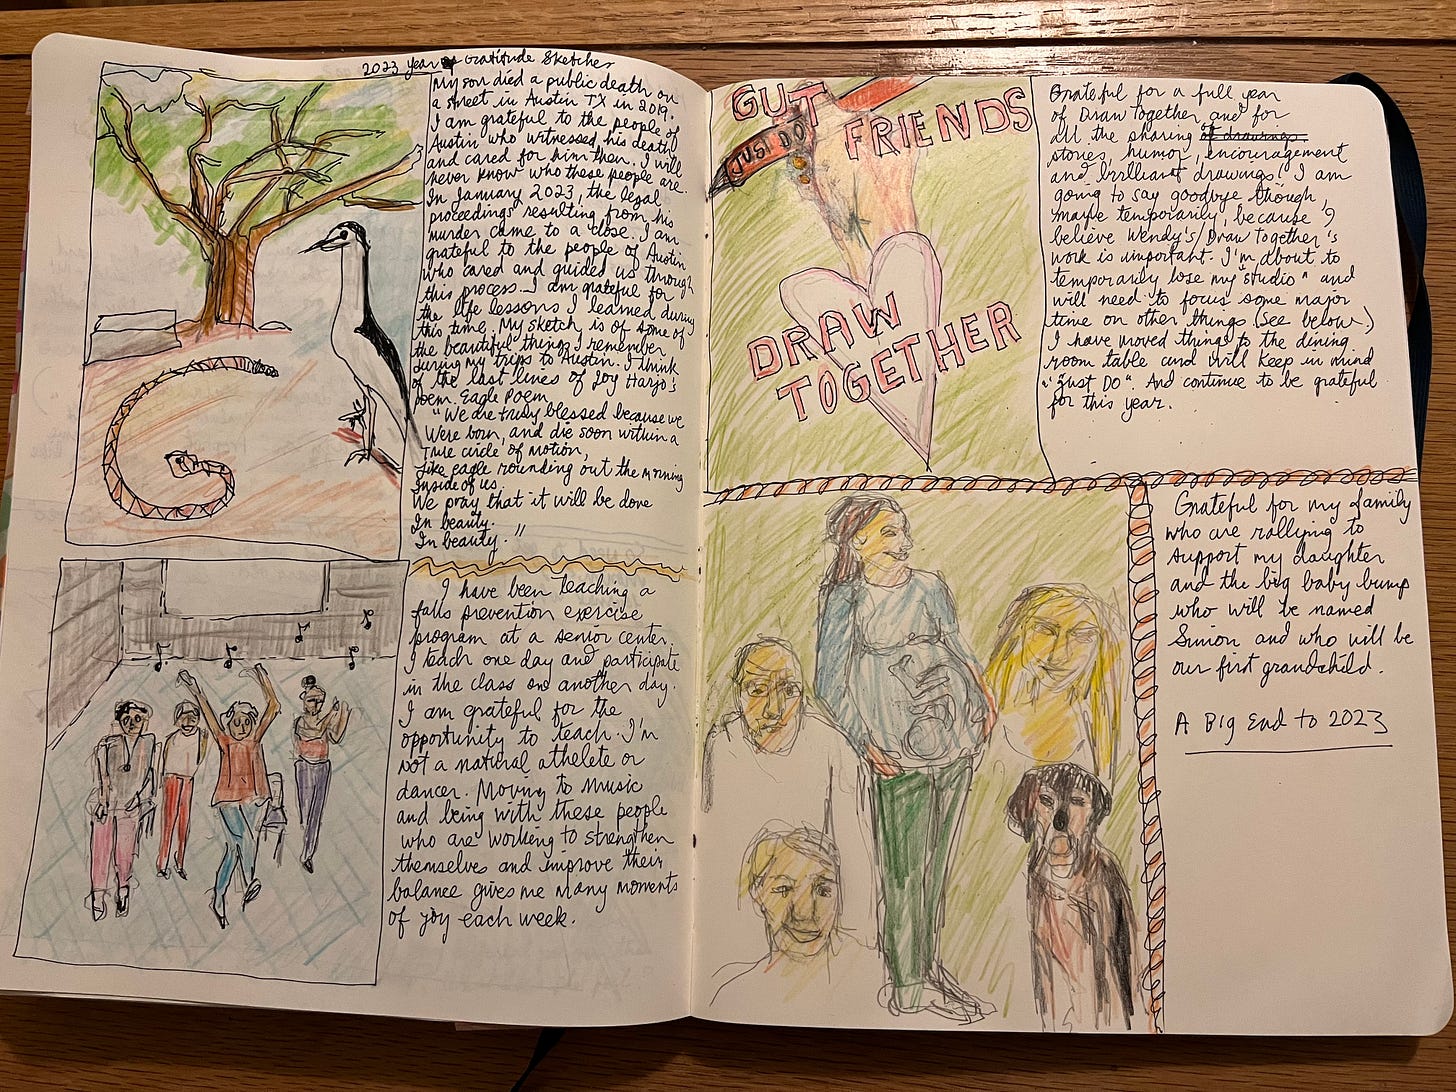 2023 year of Gratitude Sketches
My son died a public death on
a street in Austin TX in 2019.
I am grateful to the people of
Austin who witnessed his death
and cared for him then. I will
never know who these people are.
In January 2023, the legal
proceedings resulting from his
murder came to a close. I am
grateful to the people of Austin
who cared and guided us through
this process. I am grateful for
the life lessons I learned during
this time. My sketch is of some of
the beautiful things I remember
during my trips to Austin. I think
of the last lines of Joy Harjo's
poem. Eagle Poem
"We are truly blessed because we
Were born, and die soon within a
True circle of motion,
Like eagle rounding out the morning
Inside of us.
We pray that it will be done
In beauty.
In beauty."
I have been teaching a
falls prevention exercise
program at a senior center.
I teach one day and participate
in the class on another day.
I am grateful for the
opportunity to teach. I'm
not a natural athelete or
dancer. Moving to music
and being with these people
who are working to strengthen
themselves and improve their
balance gives me many moments
of joy each week.
GUT
FRIENDS
JUST DO
DRAW
TOGETHER
Grateful for a full year
of Draw Together and for
all the sharing of drawings
stories, humor, encouragement
and brilliant drawings. I am
going to say goodbye though,
maybe temporarily, because I
believe Wendy's/Draw Together's
work is important. I'm about to
temporarily lose my "studio" and
will need to focus some major
time on other things (see below.)
I have moved things to the dining
room table and will keep in mind
"Just DO". And continue to be grateful
for this year.
Grateful for my family
who are rallying to
support my daughter
and the big baby bump
who will be named
Simon and who will be
our first grandchild.
A Big End to 2023